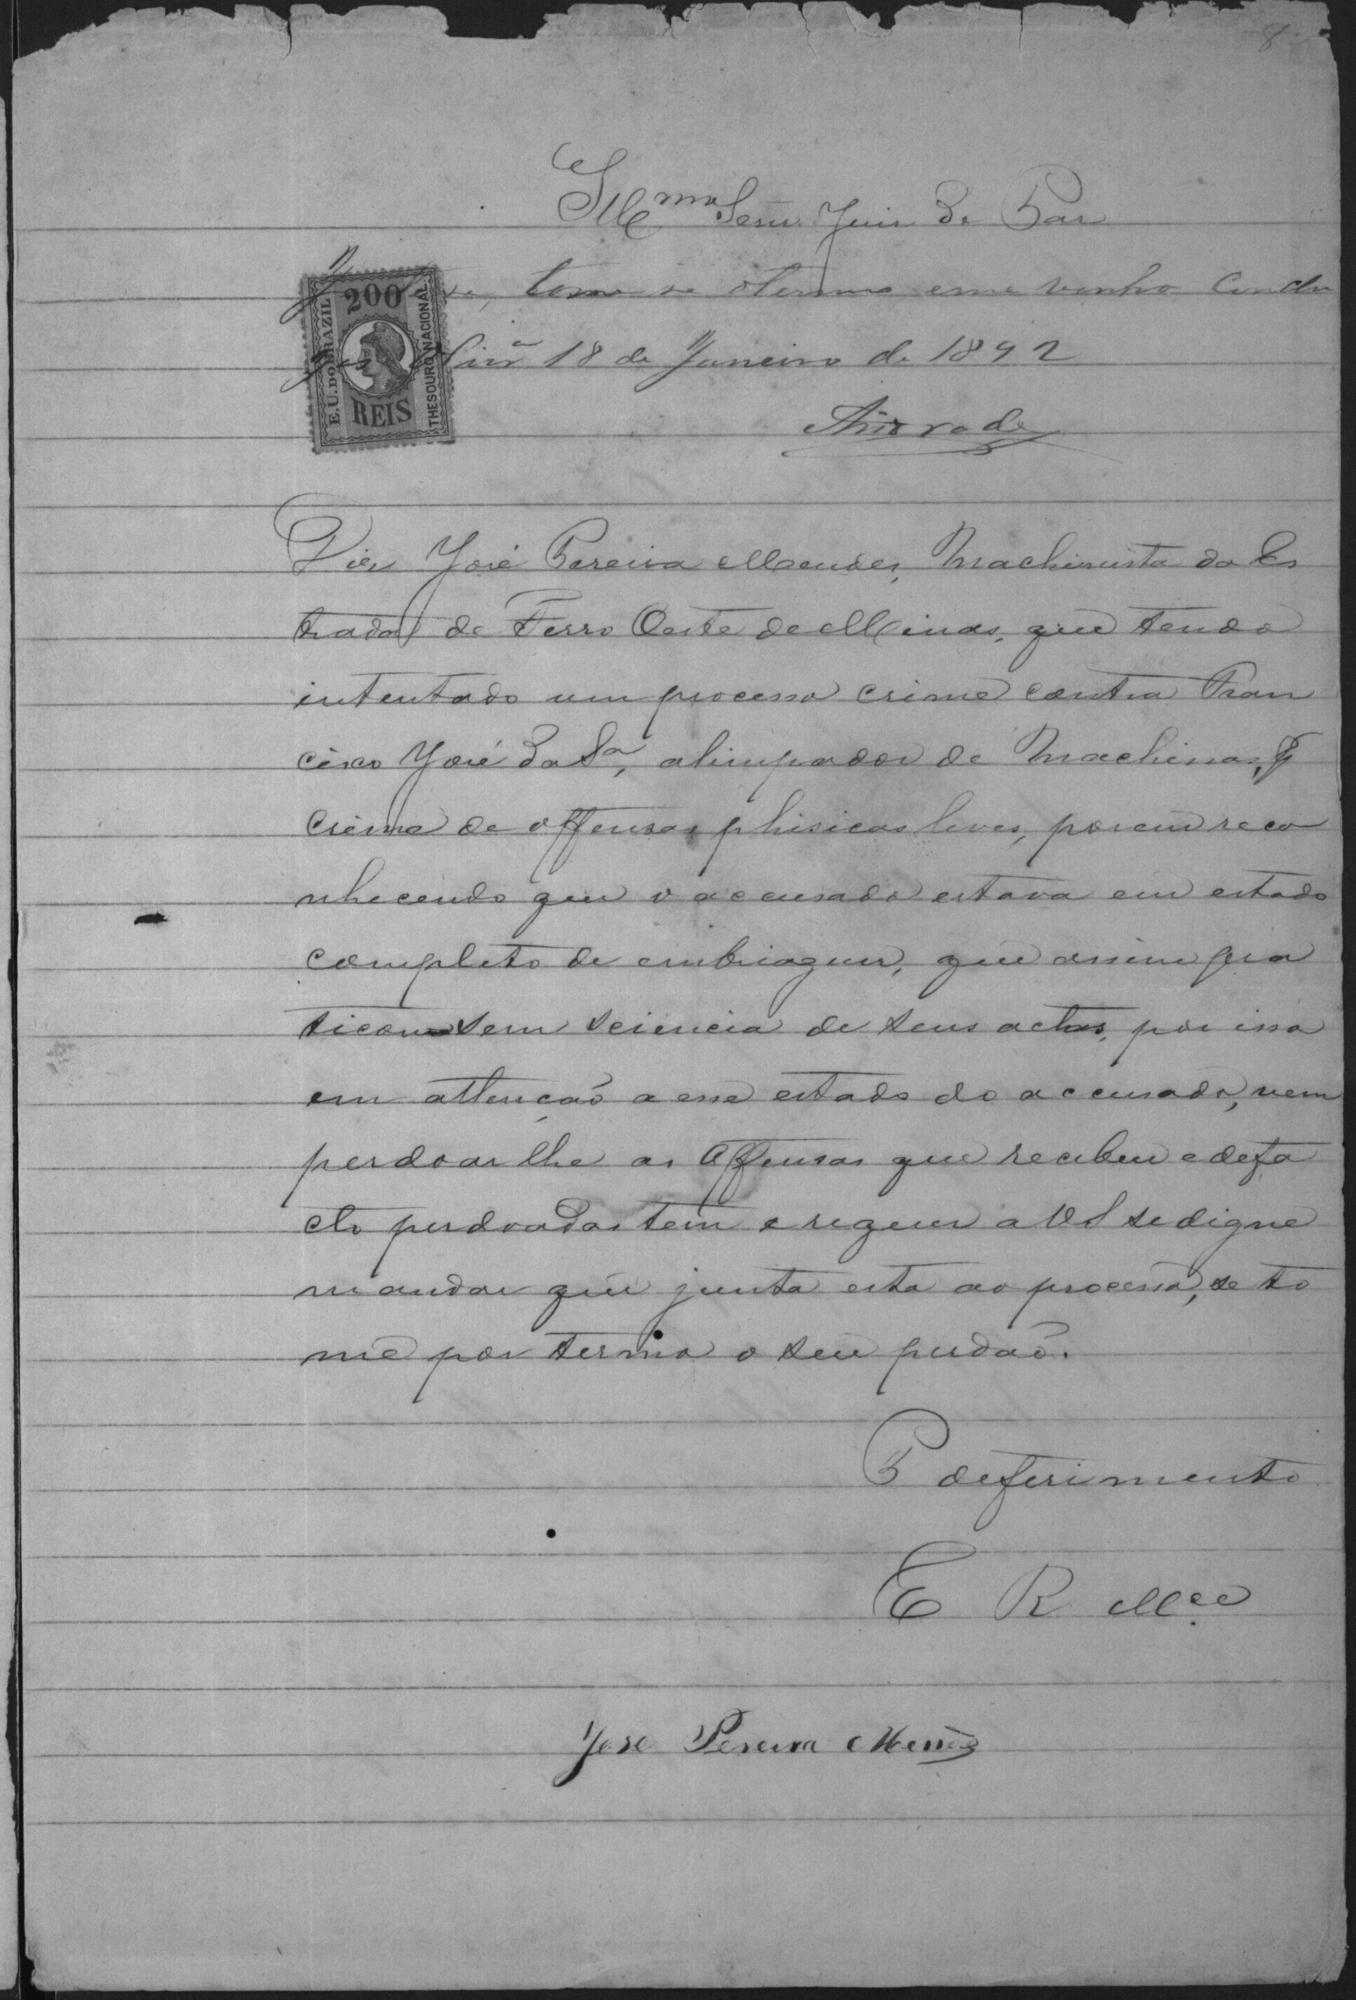 8
Illmo Senr Juiz de Paz
J. tome-se o termo e me venha conclu
18 de Janeiro de 1892
Andrade
200
REIS
E. U. DO BRAZIL
THESOURO NACIONAL
Diz José Pereira Mendes, Machinista da Es
trada de Ferro Oeste de Minas, que tendo
intentado um processo crime contra Fran
cisco José da Sa, alimpador de Machinas, p
crime de offensas phisicas leves, porem reco
nhecendo que o accusado estava em estado
completo de embriaguez, que assim pra
ticou sem sciencia de seus actos, por isso
em attenção a esse estado do accusado, vem
perdoar lhe as offensas que recebeu e de fa
cto perdoadas tem e requer a VS se digne
mandar que junta esta ao processo, se to
me por termo o seu perdaõ.
P deferimento
E R Mce
Jose Pereira Mendes